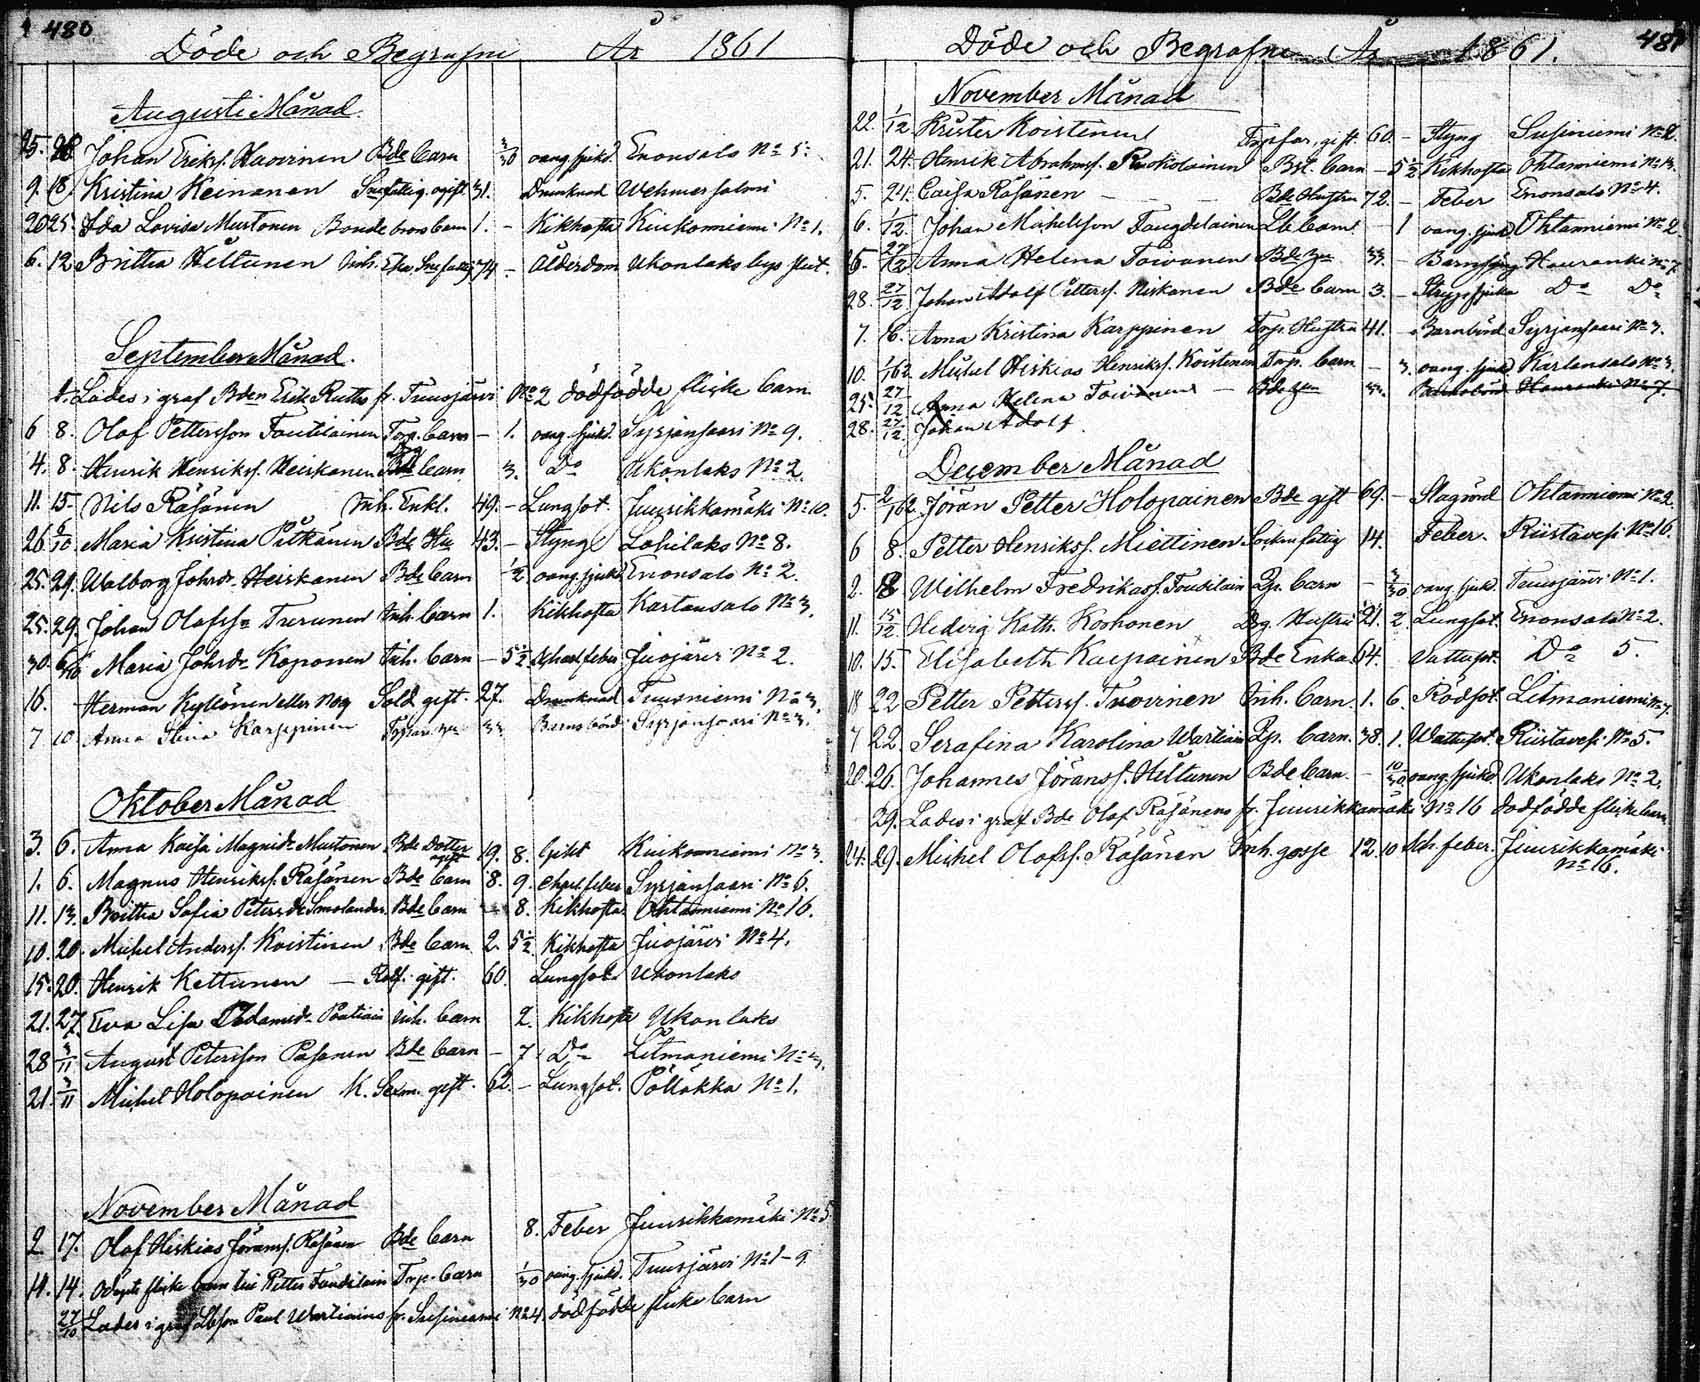 480
Döde och Begrafne År 1861
Augusti Månad.
25. 28 Johan Erikss. Haovinen Bde Barn 3/30 oang. sjukd. Enonsalo No 5.
9. 18. Kristina Heinonen Snfattig. ogift 31. Drunknad Wehmersalmi
20 25. Ida Lovisa Mustonen Bonde sons barn 1. - Kikhosta Kinkomniemi No 1.
6. 12 Britha Hiltunen Inh. Eka Snfattig 74 - Ålderdom Ukonlaks
September Månad.
1. Lades i graf Bden Erik Ruths fr. Tuusjärvi No 2 dödfödde flicke barn
6 8. Olof Pettersson Toutilainen Torp. Barn - 1. oang. sjukd. Syrjänsaari No 9.
4. 8. Henrik Henrikss. Heiskanen Bde Barn 3. Do Ukonlaks No 2
11. 15. Nils Räsänen Inh. Enkl. 49. - Lungsot. Juurikkamäki No 10.
26. 6/10 Maria Kristina Pitkänen Bde Hu 43. - Styng Lohilaks No 8.
25. 29. Walborg Johsdr Heiskanen Bde barn 1/2 oang. sjukd. Enonsalo No 2.
25. 29. Johan Olofss. Turunen Inh. barn 1. Kikhosta Kartansalo No 3.
30. 6/10 Maria Johsdr Koponen Inh. barn - 5 1/2 Scharl. feber Juojärvi No 2.
16. Herman Kylönen eller Nog Sold. gift. 27. Drunknad Tuusniemi No 3.
7 10. Anna Stina Karppinen Barnsbörd Syrjänsaari No 3.
Oktober Månad
3. 6. Anna Kaisa Magnidr Mustonen Bde Dotter ogift 19. 8. Gikt Kinkomniemi No 3.
1. 6. Magnus Henrikss. Räsänen Bde barn 8. 9. Scharl. feber Syrjänsaari No 6.
11. 13. Britha Sofia Petersdr Smolander Bde barn - 8. Kikhosta Ohtamiemi No 16.
10. 20. Michel Anderss. Koistinen Bde barn 2. 5 1/2 Kikhosta Juojärvi No 4.
15. 20. Henrik Kettunen - gift. 60. Lungsot Ukonlaks
21. 27. Eva Lisa Adamsdr Pentinin Inh. barn 2. Kikhosta Ukonlaks
28 3/11 August Petersson Pasanen Bde barn - 7. Do Litmaniemi No 3.
21. 3/11 Michel Holopainen K. Sexm. gift. 62. - Lungsot. Pölläkkä No 1.
November Månad
2 17. Olof Hiskias Göranss. Räsänen Bde barn 8. Feber Juurikkamäki No 5.
11. 14. Odöpte flicke barn till Petter Toutilain Torp. barn 1/30 oang. sjukd. Tuusjärvi No 1-9.
27/10 Lades i graf Paul Wartiains fr. Susiniemi No 4 dödfödde flicke barn
481
Döde och Begrafne År 1861.
November Månad
22. 1/12 Krister Koistinen Torpar, gift. 60. - Styng Susiniemi No 2.
21. 24. Henrik Abrahamss. Ruokolainen Bde. barn - 5 1/2 Kikhosta Ohtamiemi No 13.
5. 24. Caisa Räsänen - - - Bde Hustru 72. - Feber Enonsalo No 4.
6. 1/12 Johan Michelsson Taugdelainen Lb. barn - 1 oang. sjukd. Ohtamiemi No 2
25. 27/12 Anna Helena Toivanen Bde 33. - Barnsäng Hauranki No 7
28. 27/12 Johan Adolf Petterss. Niskanen Bde barn 3. - Strypsjuka Do Do
7. 8. Anna Kristina Karppinen Torp. Hustru 41. - Barnbörd Syrjänsaari No 3.
10. 1/62 Michel Hiskias Henrikss. Koistinen Torp. barn - 3. oang. sjukd. Kartansalo No 3.
25. 27/12 Anna Helena Toivanen - Bde 33. Barnsbörd Hauranki No 7.
28. 27/12. Johan Adolf.
December Månad
5. 2/1 62. Jöran Petter Holopainen Bde gift 69. - Slagond Ohtamiemi No 2.
6 8. Petter Henrikss. Miettinen Socken fattig 14. Feber. Riistavesi No 16.
2. 8 Wilhelm Fredrikss. Toutilain Lp. barn - 3/30 oang. sjukd. Tuusjärvi No 1.
11. 15/12 Hedvig Kath. Korhonen Drg. Hustru 21. 2 Lungsot. Enonsalo No 2.
10. 15. Elisabeth Karppainen Bde Enka 64. Vattusot. Do 5.
18 22 Petter Petterss. Tuovinen Inh. barn. 1. 6. Rödsot. Litmaniemi No 7.
7 22. Serafina Karolina Wartiain Lp. barn. 38. 1. Wattusot. Riistavesi No 5.
20. 26. Johannes Jöranss. Hiltunen Bde barn. - 10/30 oang. sjukd. Ukonlaks No 2.
29. Lades i graf Bde Olof Räsänens fr. Juurikkamäki No 16 dödfödde flicke barn
24. 29. Michel Olofss. Räsänen Inh. gosse 12. 10 Sch. feber. Juurikkamäki No 16.